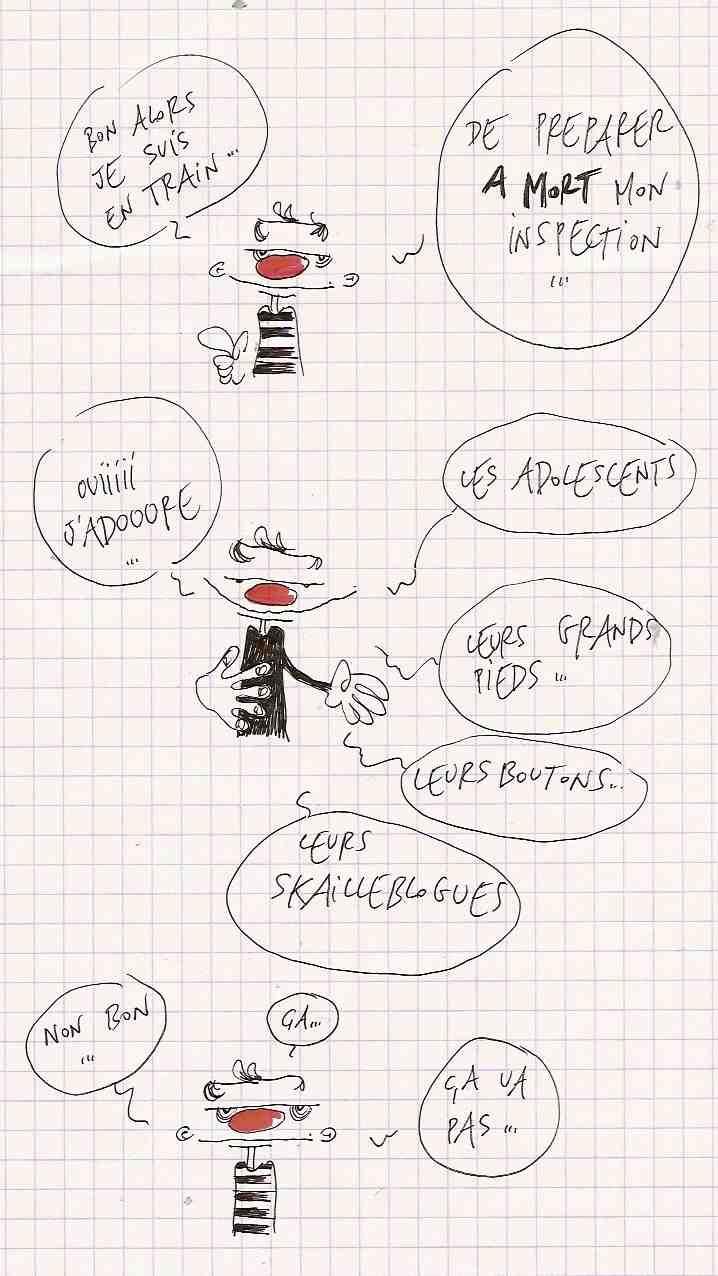 BON ALORS
JE SUIS
EN TRAIN...
DE PREPARER
A MORT MON
INSPECTION
...
OUIIIIII
J'ADOOORE
...
LES ADOLESCENTS
LEURS GRANDS
PIEDS ...
LEURS BOUTONS...
LEURS
SKAILLEBLOGUES
NON BON
...
ÇA...
ÇA VA
PAS ...